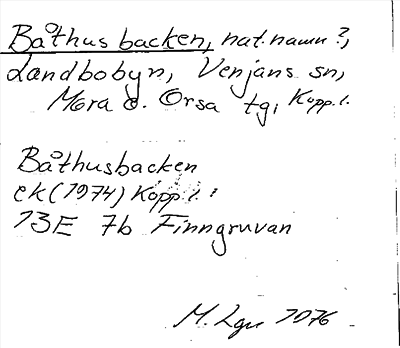 Båthusbacken, nat.namn?,
Landbobyn, Venjans sn,
Mora o. Orsa tg, Kopp.l.
Båthusbacken
ek (1974) Kopp.l.
13E 7b Finngruvan
M. Lgn 1976